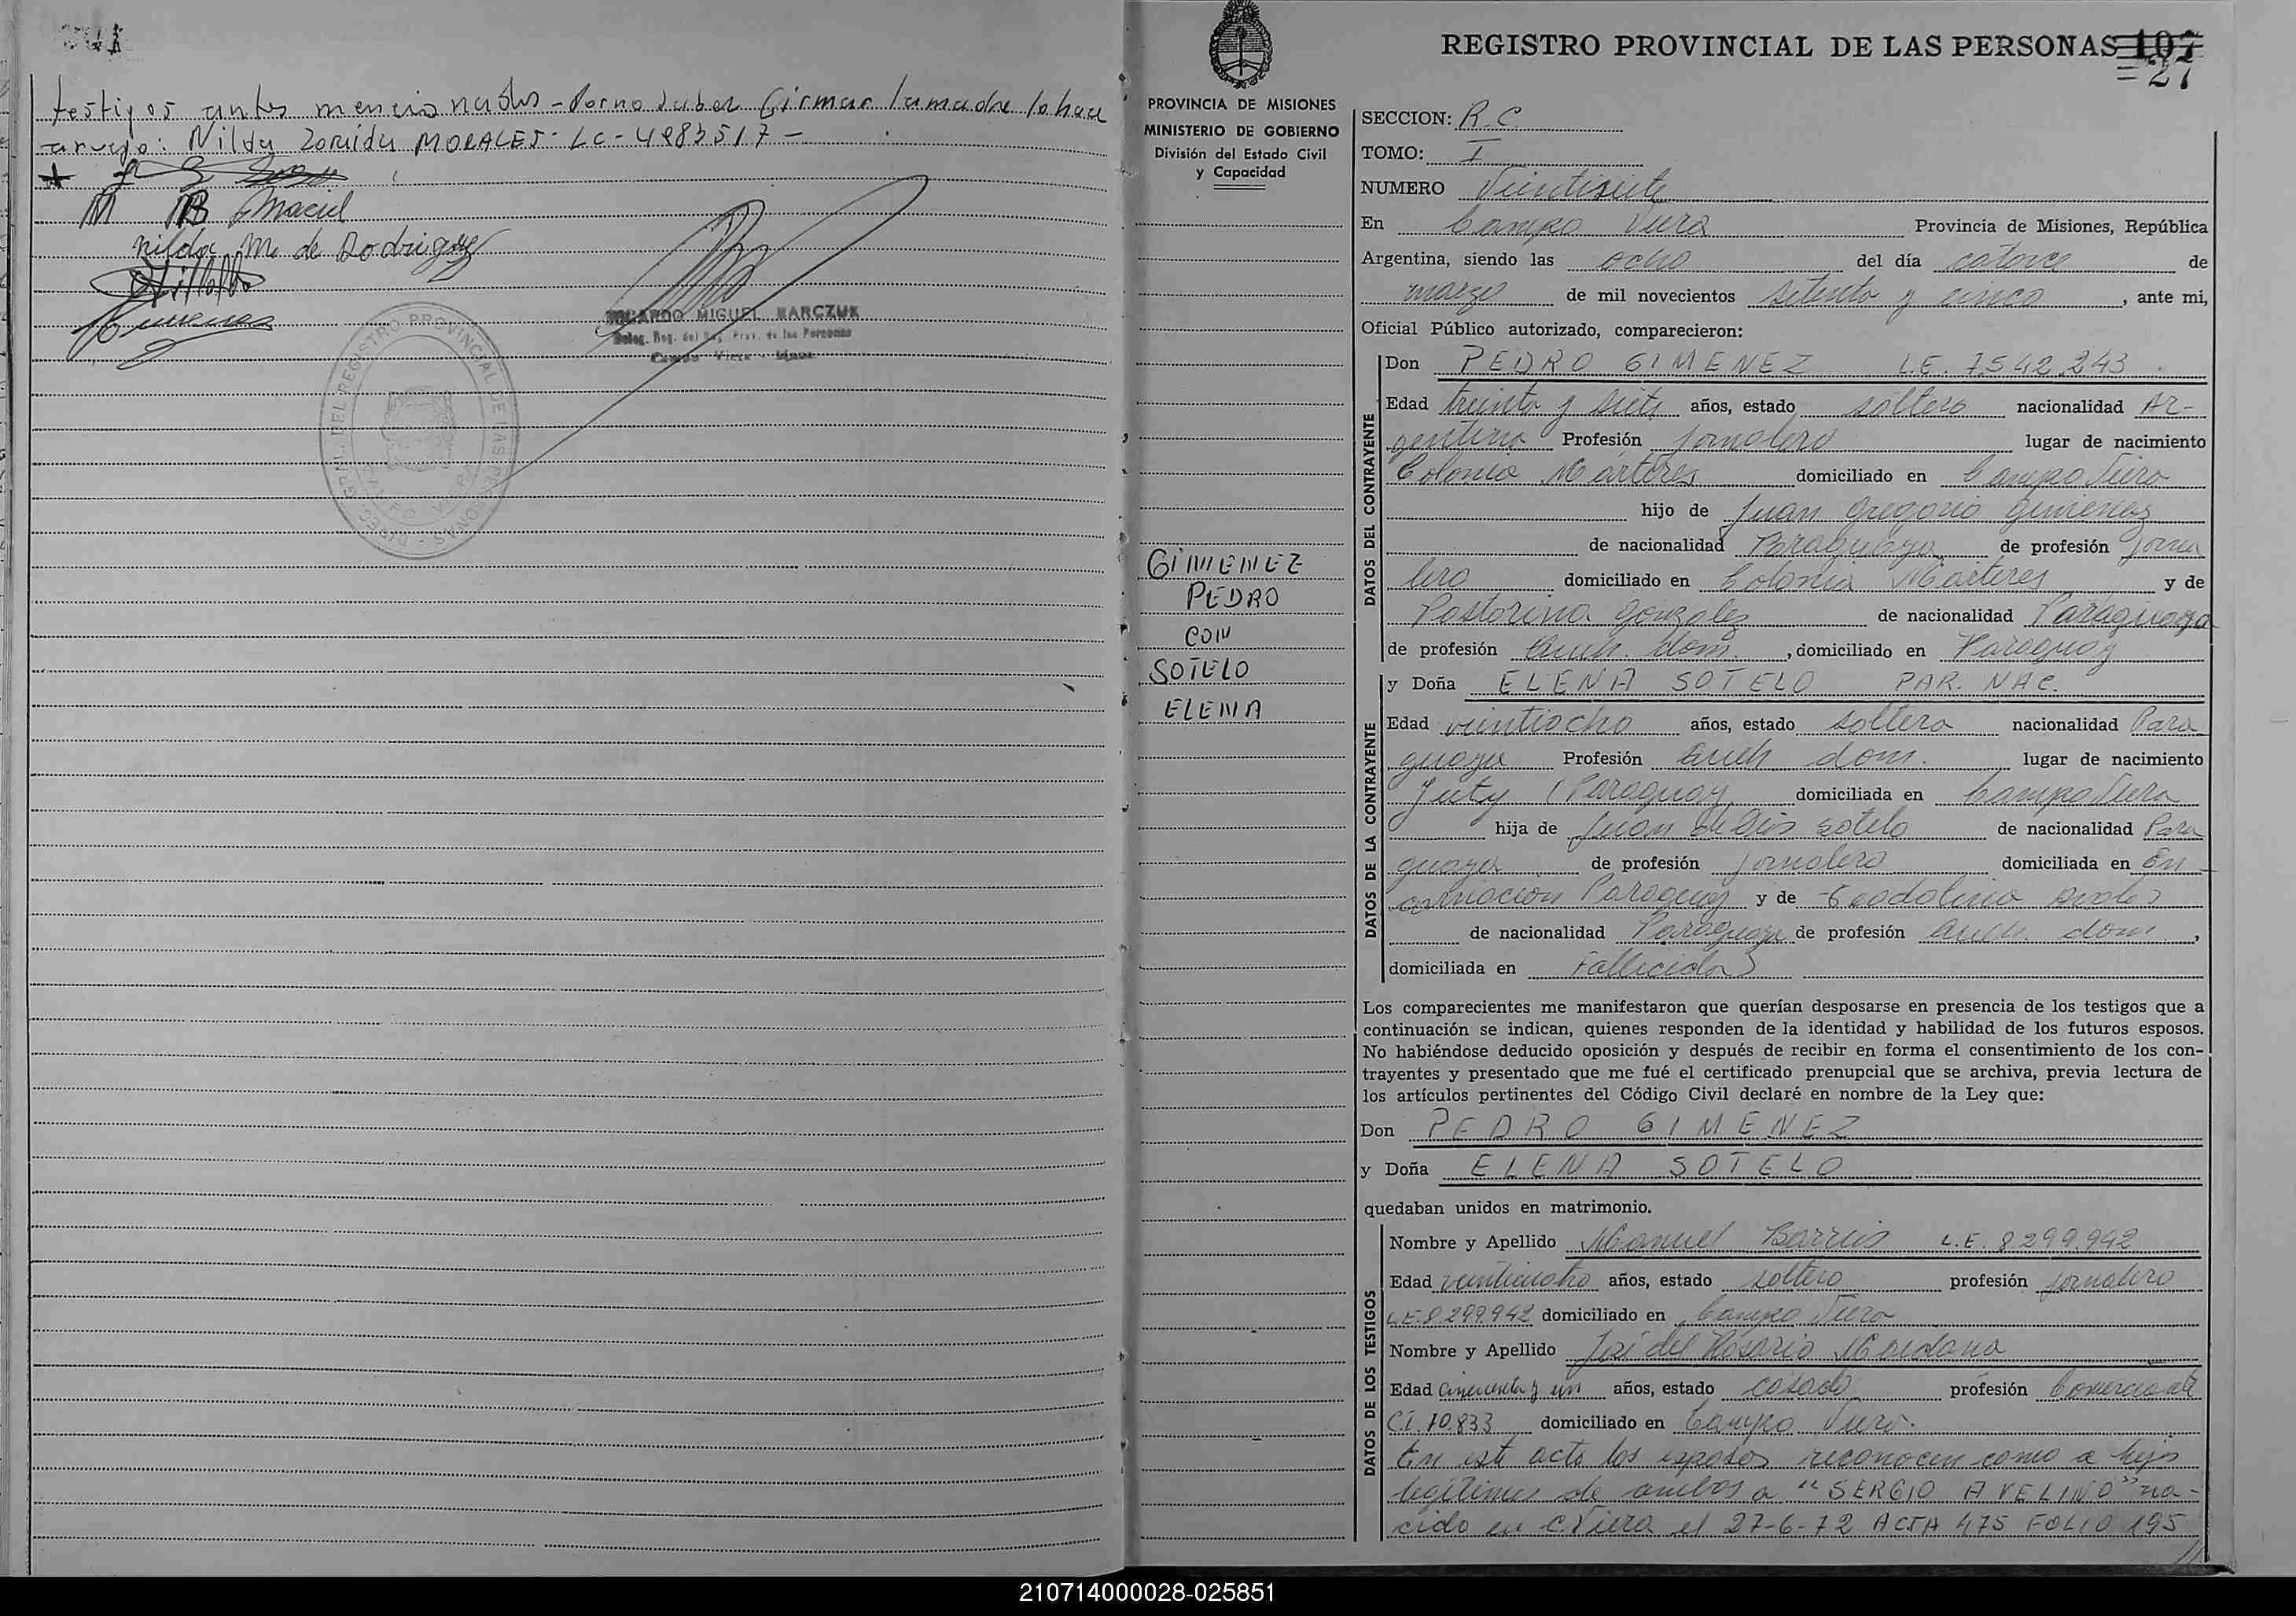 testigos antes mencionados - Por no saber firmar la madre lo hace
a ruego: Nilda Zoraida MORALES - LC - 4983517 -
Maciel
Nilda M. de Rodriguez
Villalba
Gimenez
EDUARDO MIGUEL MARCZUK
Deleg. Reg. del Reg. Prov. de las Personas
Campo Viera - Mnes.
REGISTRO PROVINCIAL DE LAS PERSONAS
107
27
PROVINCIA DE MISIONES
MINISTERIO DE GOBIERNO
División del Estado Civil
y Capacidad
GIMENEZ
PEDRO
CON
SOTELO
ELENA
SECCION: R.C.
TOMO: I
NUMERO Veintisiete
En Campo Viera Provincia de Misiones, República
Argentina, siendo las ocho del día catorce de
marzo de mil novecientos setenta y cinco, ante mi,
Oficial Público autorizado, comparecieron:
DATOS DEL CONTRAYENTE
Don PEDRO GIMENEZ L.E. 7.542.243
Edad treinta y siete años, estado soltero nacionalidad Ar-
gentina Profesión jornalero lugar de nacimiento
Colonia Martires domiciliado en Campo Viera
hijo de Juan Gregorio Gimenez
de nacionalidad Paraguaya de profesión Jorna
lero domiciliado en Colonia Martires y de
Pastorina Gonzalez de nacionalidad Paraguaya
de profesión Queh. dom., domiciliado en Paraguay
DATOS DE LA CONTRAYENTE
y Doña ELENA SOTELO PAR. NAC.
Edad veintiocho años, estado soltera nacionalidad Para
guaya Profesión Queh dom. lugar de nacimiento
Yuty (Paraguay domiciliada en Campo Viera
hija de Juan de Dios Sotelo de nacionalidad Para
guaya de profesión jornalero domiciliada en En
carnacion Paraguay y de Teodolina
de nacionalidad Paraguaya de profesión Queh. dom.,
domiciliada en Fallecida
Los comparecientes me manifestaron que querían desposarse en presencia de los testigos que a
continuación se indican, quienes responden de la identidad y habilidad de los futuros esposos.
No habiéndose deducido oposición y después de recibir en forma el consentimiento de los con-
trayentes y presentado que me fué el certificado prenupcial que se archiva, previa lectura de
los artículos pertinentes del Código Civil declaré en nombre de la Ley que:
Don PEDRO GIMENEZ
y Doña ELENA SOTELO
quedaban unidos en matrimonio.
DATOS DE LOS TESTIGOS
Nombre y Apellido Manuel Barrios L.E. 8.299.942
Edad veinticuatro años, estado soltero profesión jornalero
L.E. 8.299.942 domiciliado en Campo Viera
Nombre y Apellido José del Rosario Maidana
Edad cincuenta y un años, estado casado profesión Comerciante
C.I. 70.833 domiciliado en Campo Viera.
En este acto los esposos reconocen como a hijo
legitimo de ambos a "SERGIO AVELINO" na-
cido en C. Viera el 27-6-72 ACTA 475 FOLIO 195
210714000028-025851